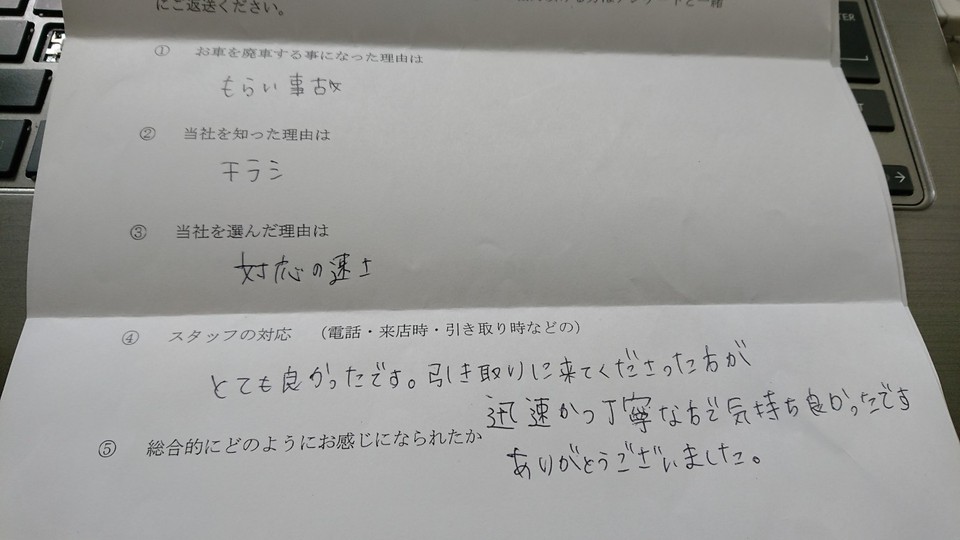 にご返送ください。
① お車を廃車する事になった理由は
もらい事故
② 当社を知った理由は
チラシ
③ 当社を選んだ理由は
対応の速さ
④ スタッフの対応 (電話・来店時・引き取り時などの)
とても良かったです。引き取りに来てくださった方が
迅速かつ丁寧な方で気持ち良かったです
⑤ 総合的にどのようにお感じになられたか
ありがとうございました。